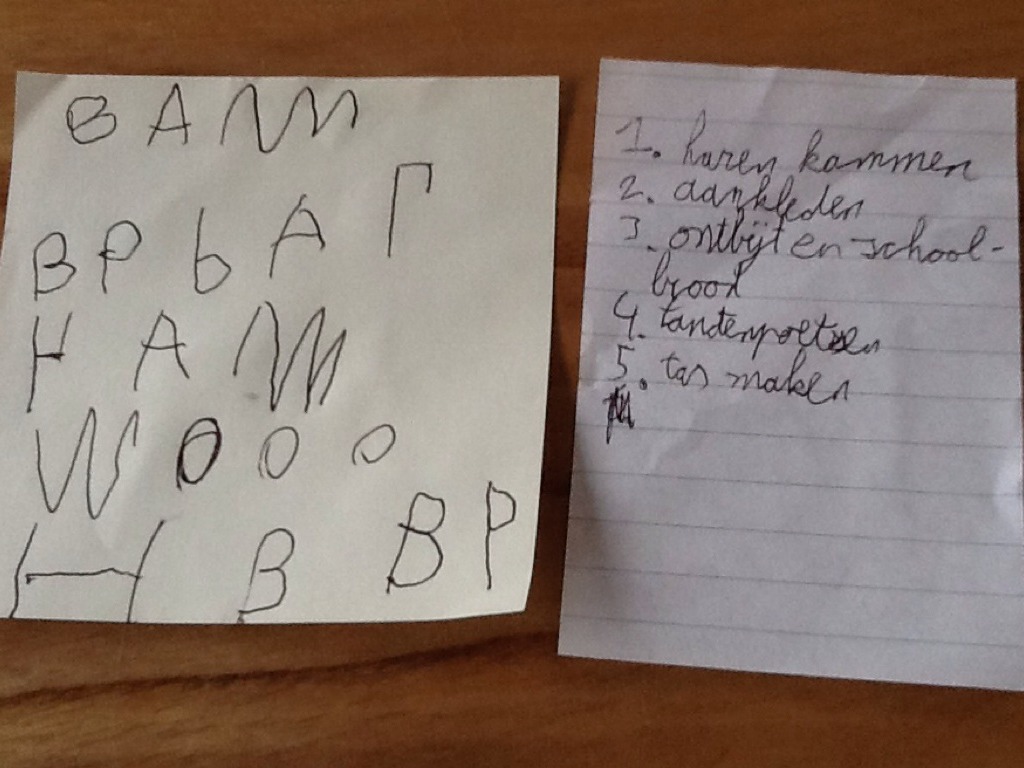 B A M
B P b A Γ
H A M
W O O O
H B B P
1. haren kammen
2. aankleden
3. ontbijt en school-
brood
4. tandenpoetsen
5. tas maken